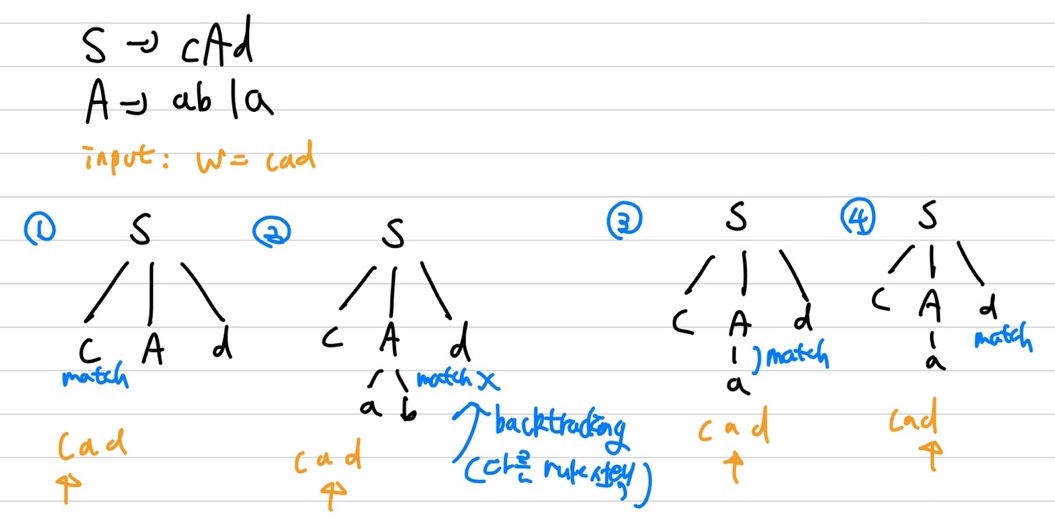 S → cAd
A → ab | a
input: w = cad
① S
C A d
match
cad
② S
C A d
a b
match x
backtracking
(다른 rule 사용)
cad
③ S
C A d
a
match
cad
④ S
C A d
a
match
cad